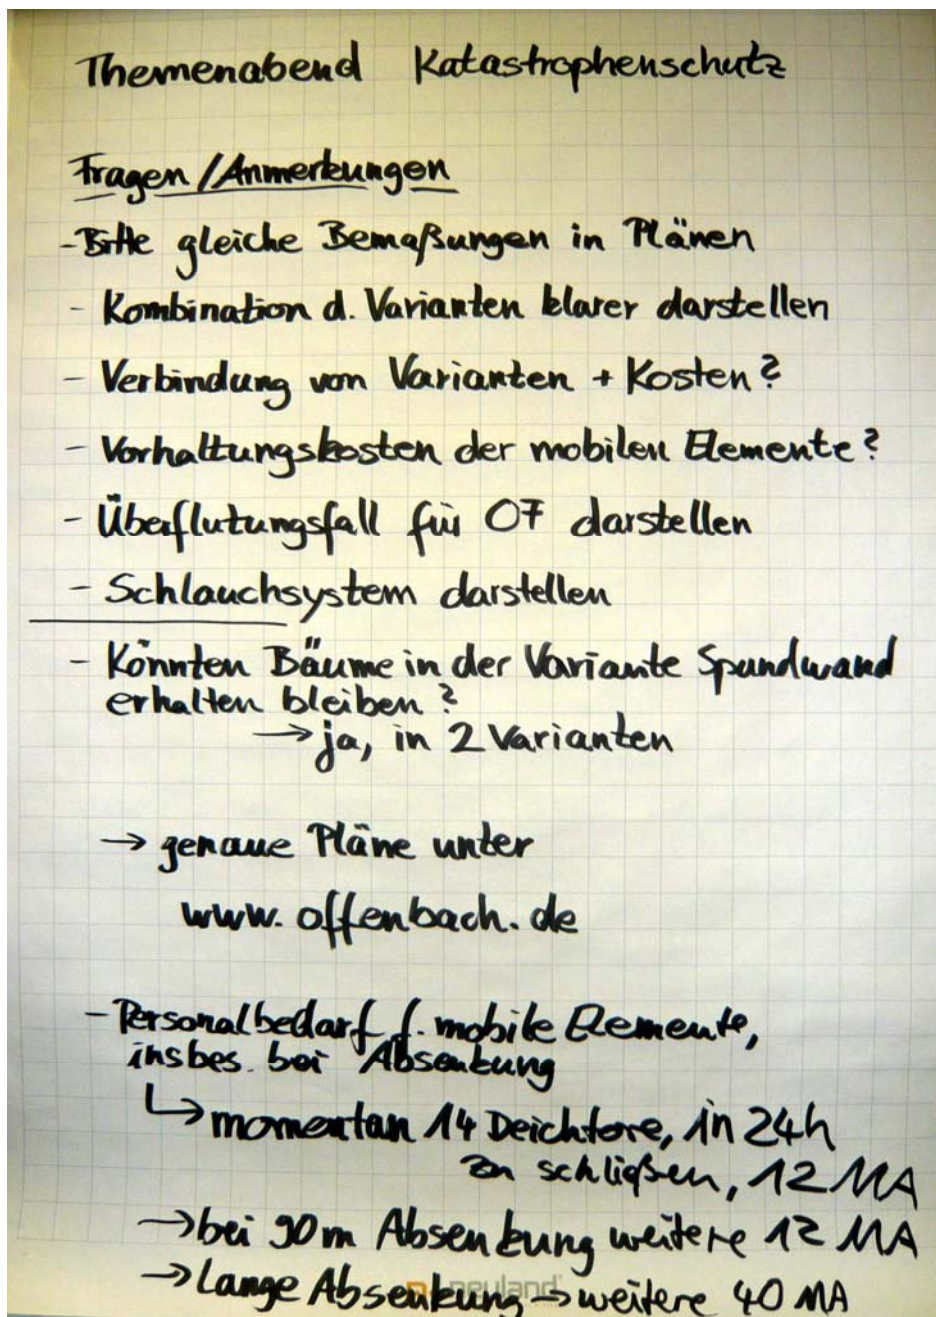 Themenabend Katastrophenschutz
Fragen/Anmerkungen
- Bitte gleiche Bemaßungen in Plänen
- Kombination d. Varianten klarer darstellen
- Verbindung von Varianten + Kosten?
- Vorhaltungskosten der mobilen Elemente?
- Überflutungsfall für OF darstellen
- Schlauchsystem darstellen
- Könnten Bäume in der Variante Spundwand
erhalten bleiben?
→ ja, in 2 Varianten
→ genaue Pläne unter
www.offenbach.de
- Personalbedarf f. mobile Elemente,
insbes. bei Absenkung
↳ momentan 14 Deichtore, in 24h
zu schließen, 12 MA
→ bei 90m Absenkung weitere 12 MA
→ Lange Absenkung → weitere 40 MA
neuland